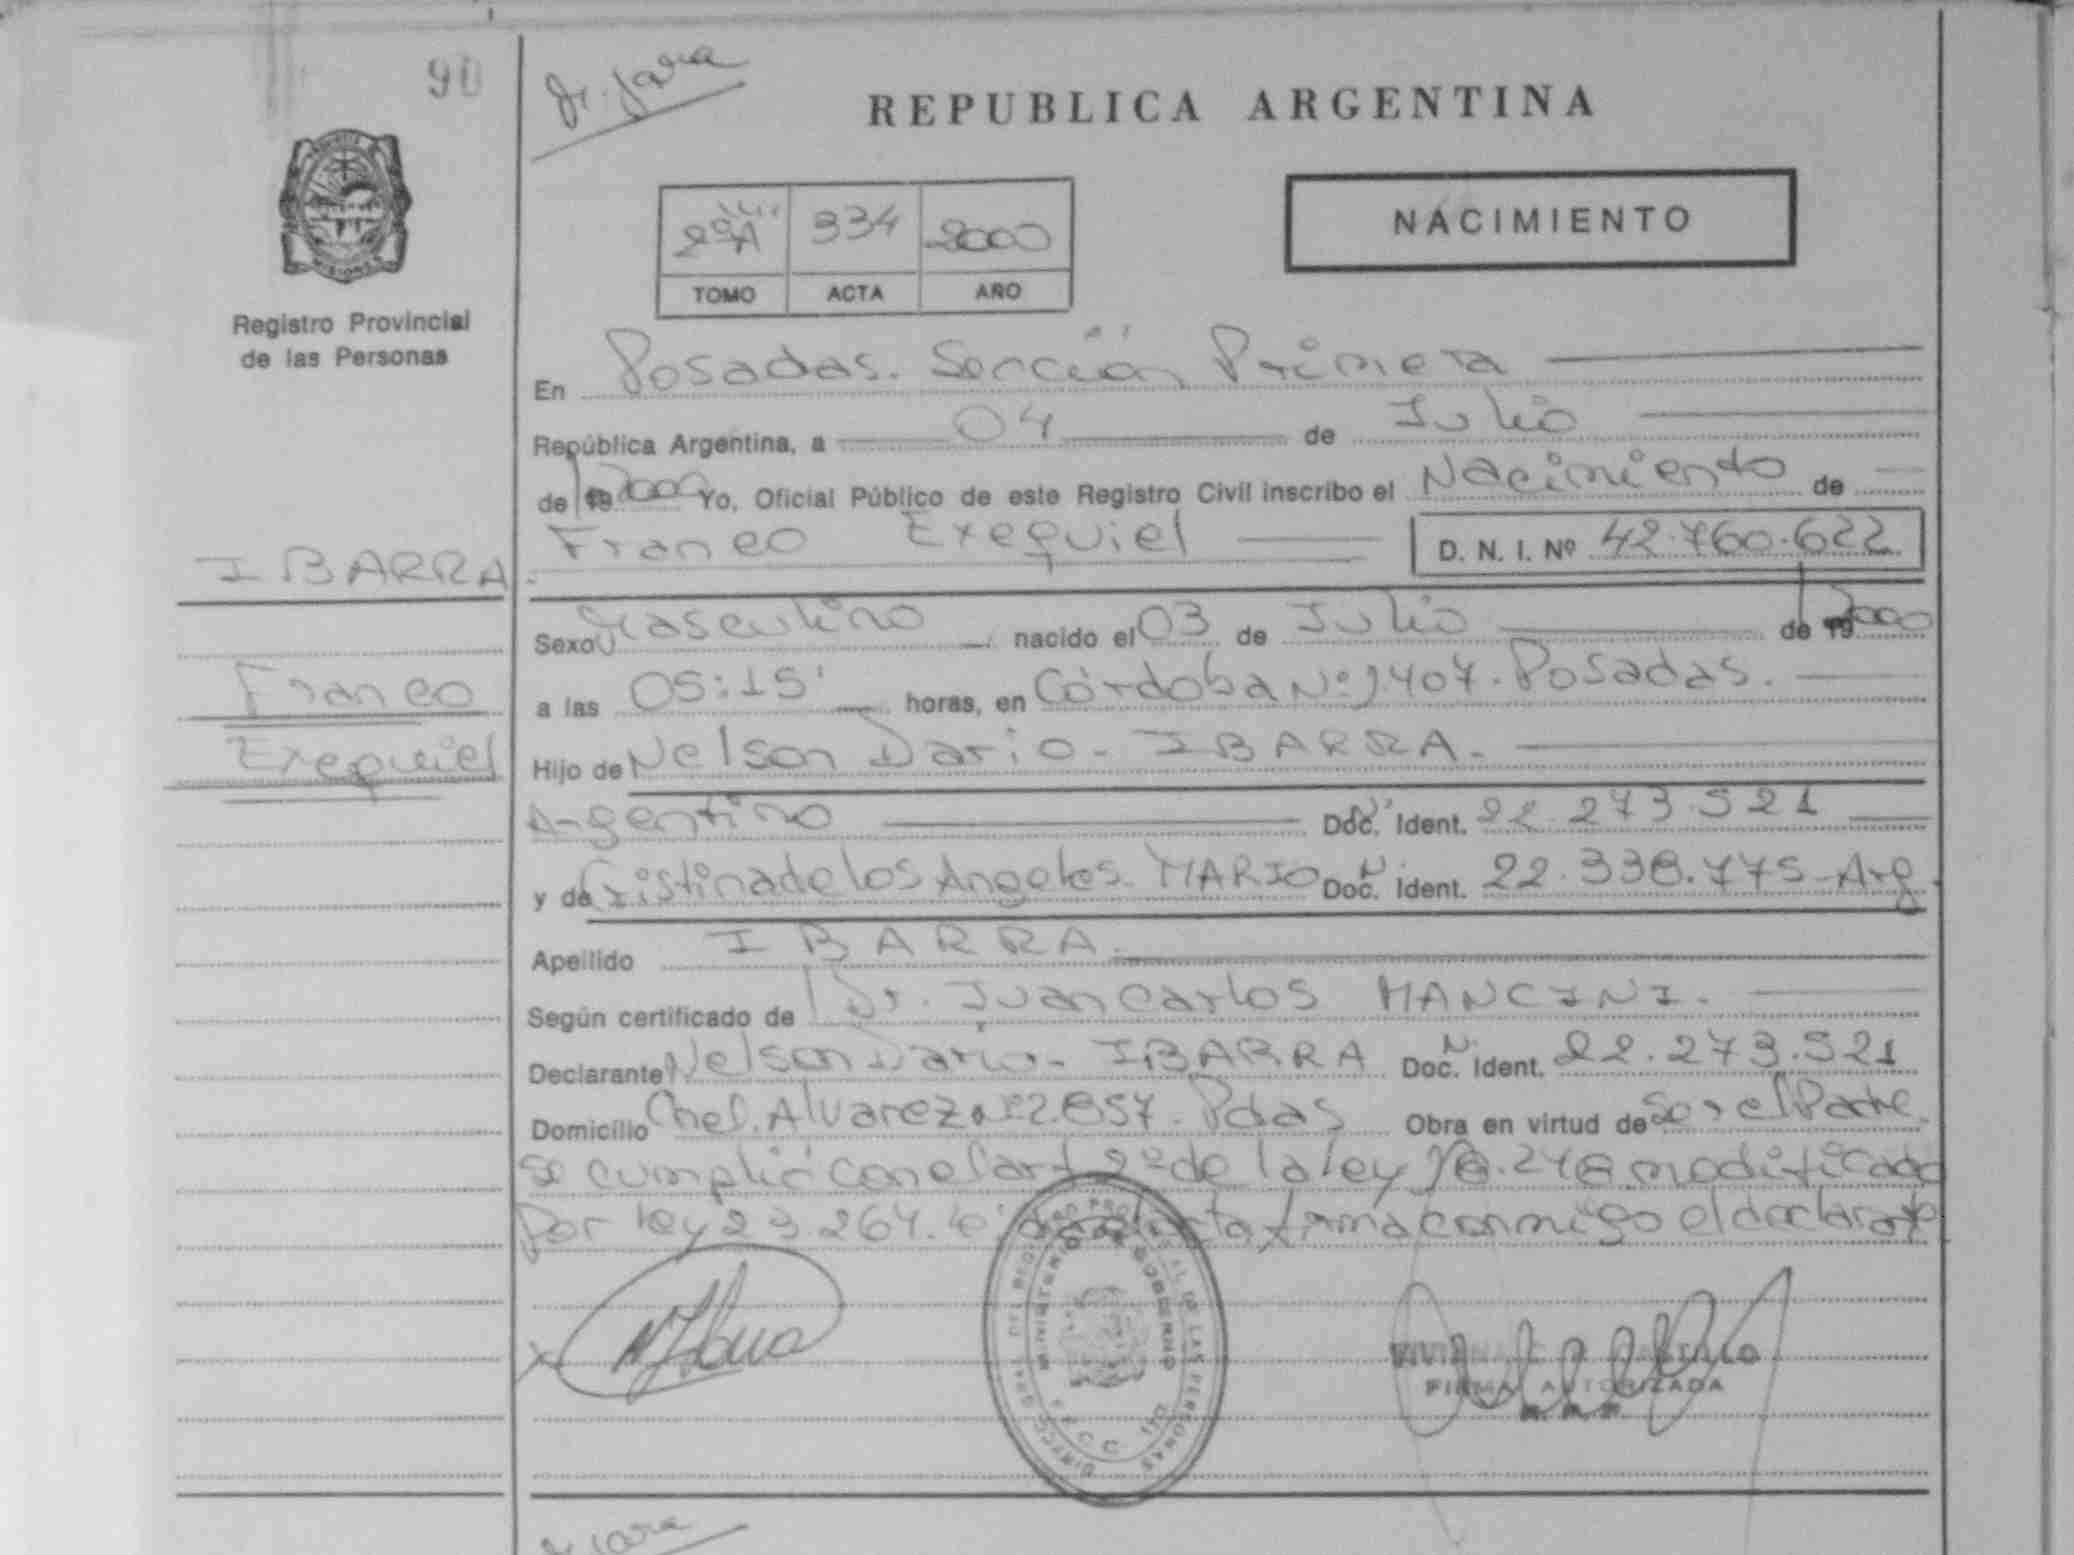 90
Dr. Jara
REPUBLICA ARGENTINA
NACIMIENTO
2º A 334 2000
TOMO ACTA AÑO
MISIONES
Registro Provincial
de las Personas
En Posadas. Sección Primera
República Argentina, a 04 de Julio
de 19 2000 Yo, Oficial Público de este Registro Civil inscribo el Nacimiento de
Franco Exequiel D. N. I. Nº 42.760.622
IBARRA.
Franco
Exequiel
Sexo Masculino nacido el 03 de Julio de 19 2000
a las 05:15' horas, en Córdoba Nº 1407. Posadas.
Hijo de Nelson Dario - IBARRA.
Argentino Doc. Ident. 22.273.521
y de Cristina de los Angeles. MARIO Doc. Ident. 22.338.775 - Arg.
Apellido IBARRA.
Según certificado de Dr. Juan Carlos MANCINI.
Declarante Nelson Dario - IBARRA Doc. Ident. 22.273.521
Domicilio Cnel. Alvarez Nº 2.857. Pdas Obra en virtud de Ser el Padre.
se cumplió con el art 2º de la ley 18.248 modificado
Por ley 23.264. firma conmigo el declarante
MINISTERIO DE GOBIERNO
FIRMA AUTORIZADA